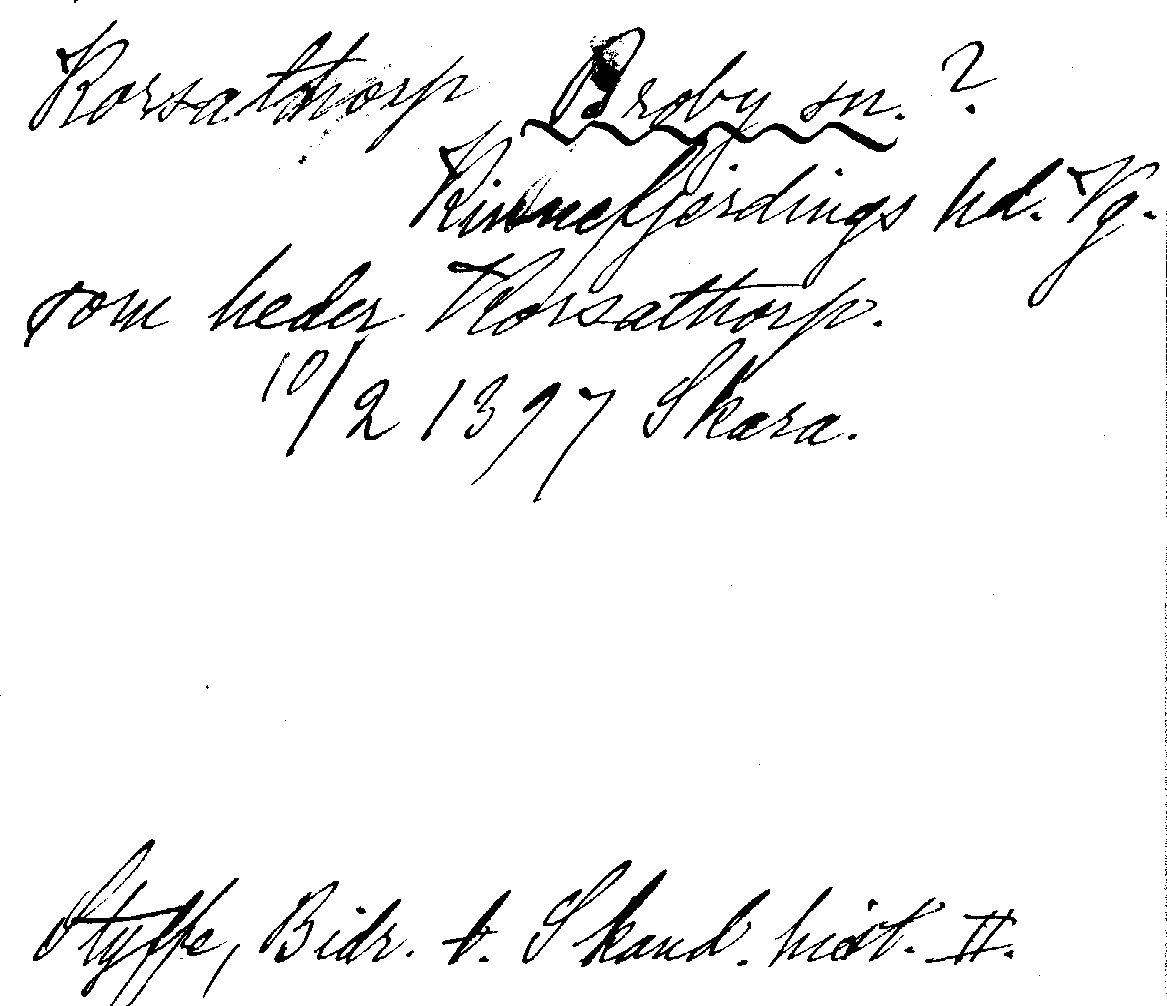 Korsathorp Broby sn. ?
Kinnefjerdings hd. Vg.
som heder Korsathorp.
10/2 1397 Skara.
Styffe, Bidr. t. Skand. hist. II.